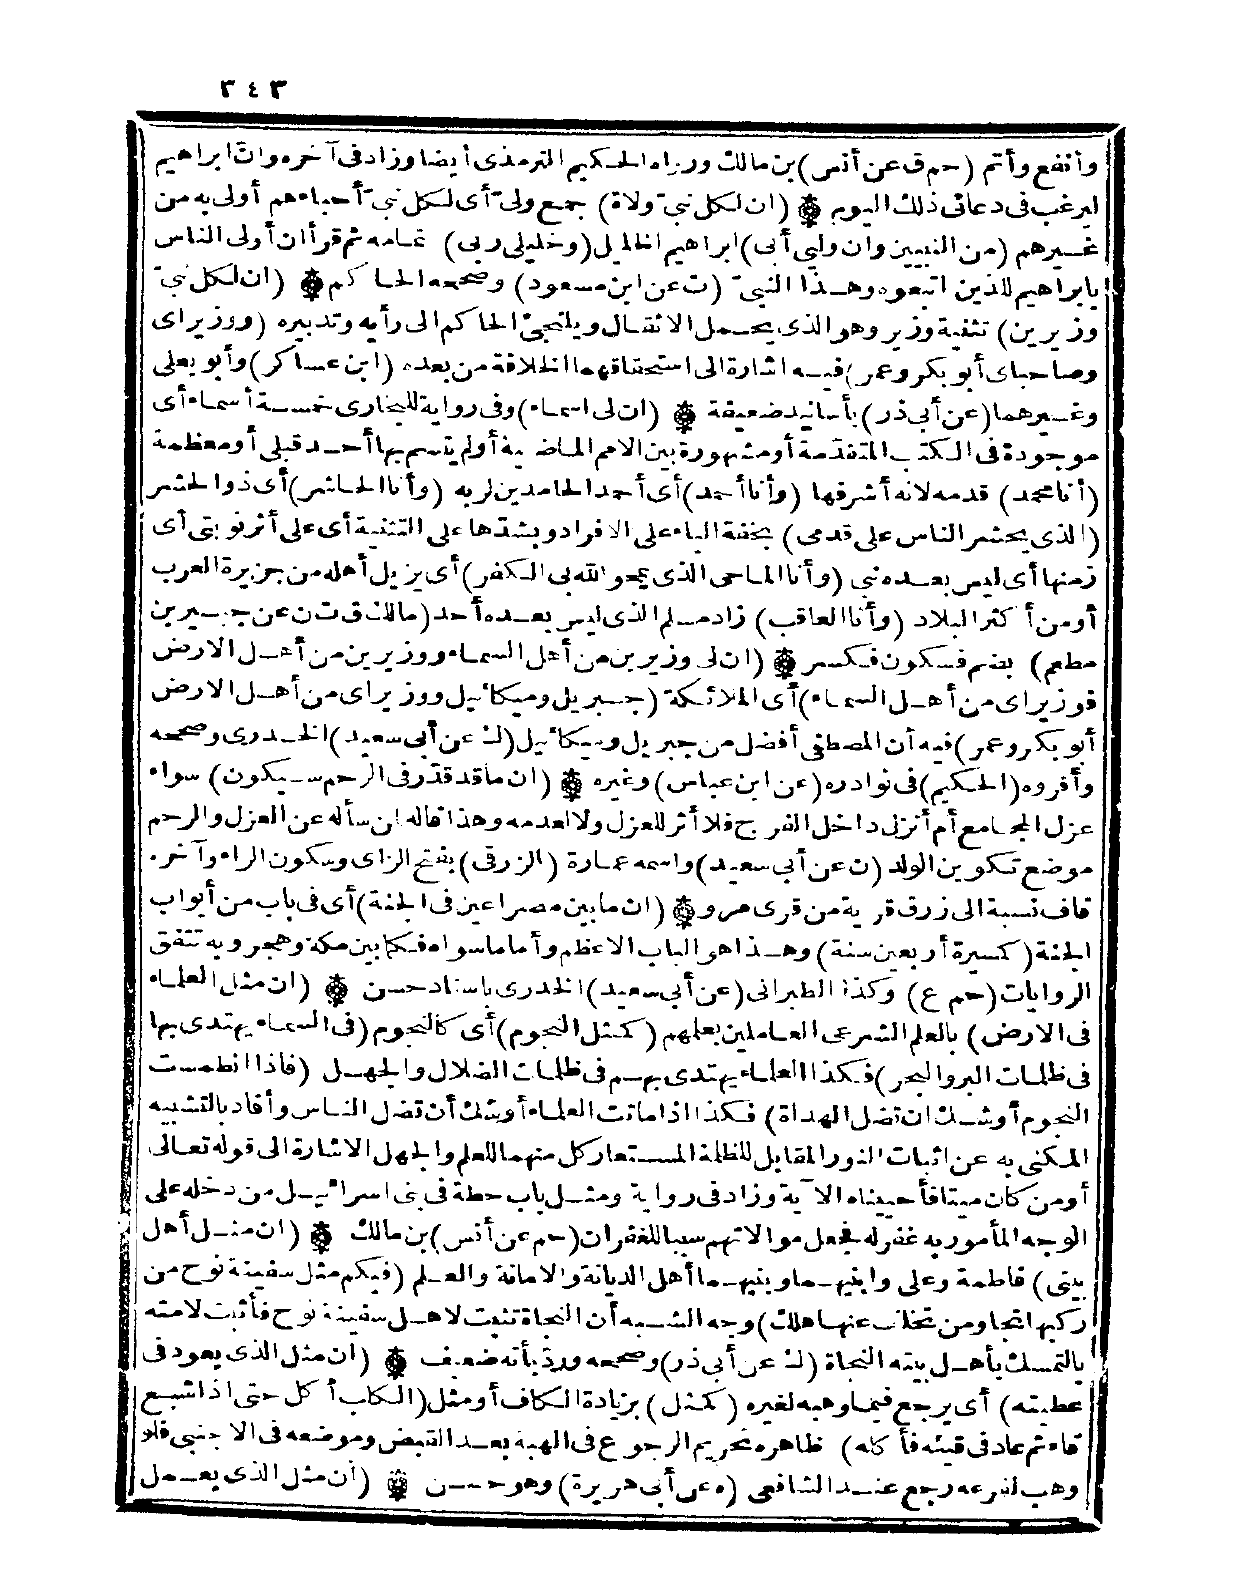 ٣٤٣
وأنفع وأتم (حم ق عن أنس) بن مالك ورواه الحكيم الترمذي أيضا وزاد في آخره وان ابراهيم
ليرغب في دعائي ذلك اليوم ۞ (ان لكل نبيّ ولاة) جمع وليّ أي لكل نبيّ أحباء هم أولى به من
غيرهم (من النبيين وان وليي أبي) ابراهيم الخليل (وخليلي ربي) تمامه ثم قرأ ان أولى الناس
بابراهيم للذين اتبعوه وهذا النبيّ (ت عن ابن مسعود) وصححه الحاكم ۞ (ان لكل نبيّ
وزيرين) تثنية وزير وهو الذي يحمل الاثقال ويلتجئ الحاكم الى رأيه وتدبيره (ووزيراي
وصاحباي أبو بكر وعمر) فيه اشارة الى استحقاقهما الخلافة من بعده (ابن عساكر) وأبو يعلى
وغيرهما (عن أبي ذر) بأسانيد ضعيفة ۞ (ان لي اسماء) وفي رواية للبخاري خمسة أسماء أي
موجودة في الكتب المتقدّمة أو مشهورة بين الامم الماضية أو لم يتسم بها أحد قبلي أو معظمة
(أنا محمد) قدمه لانه أشرفها (وأنا أحمد) أي أحمد الحامدين لربه (وأنا الحاشر) أي ذو الحشر
(الذي يحشر الناس على قدمي) بخفة الياء على الافراد وبشدّها على التثنية أي على أثر نبوّتي أي
زمنها أي ليس بعده نبي (وأنا الماحي الذي يمحو الله بي الكفر) أي يزيل أهله من جزيرة العرب
أو من أكثر البلاد (وأنا العاقب) زاد مسلم الذي ليس بعده أحد (مالك ق ت ن عن جبير بن
مطعم) بضم فسكون فكسر ۞ (ان لي وزيرين من أهل السماء ووزيرين من أهل الارض
فوزيراي من أهل السماء) أي الملائكة (جبريل وميكائيل ووزيراي من أهل الارض
أبو بكر وعمر) فيه أن المصطفى أفضل من جبريل وميكائيل (ك عن أبي سعيد) الخدري وصححه
وأقروه (الحكيم) في نوادره (عن ابن عباس) وغيره ۞ (ان ما قد قدّر في الرحم سيكون) سواء
عزل المجامع أم أنزل داخل الفرج فلا أثر للعزل ولا لعدمه وهذا قاله لمن سأله عن العزل والرحم
موضع تكوين الولد (ن عن أبي سعيد) واسمه عمارة (الزرقي) بفتح الزاي وسكون الراء وآخره
قاف نسبة الى زرق قرية من قرى مرو ۞ (ان ما بين مصراعين في الجنة) أي في باب من أبواب
الجنة (كمسيرة أربعين سنة) وهذا هو الباب الاعظم وأما ما سواه فكما بين مكة وهجر وبه تتفق
الروايات (حم ع) وكذا الطبراني (عن أبي سعيد) الخدري باسناد حسن ۞ (ان مثل العلماء
في الارض) بالعلم الشرعي العاملين بعلمهم (كمثل النجوم) أي كالنجوم (في السماء يهتدى بها
في ظلمات البر والبحر) فكذا العلماء يهتدى بهم في ظلمات الضلال والجهل (فاذا انطمست
النجوم أوشك ان تضل الهداة) فكذا اذا ماتت العلماء أوشك أن تضل الناس وأفاد بالتشبيه
المكنى به عن اثبات النور المقابل للظلمة المستعار كل منهما للعلم والجهل الاشارة الى قوله تعالى
أو من كان ميتا فأحييناه الآية وزاد في رواية ومثل باب حطة في بني اسرائيل من دخله على
الوجه المأمور به غفر له فجعل موالاتهم سببا للغفران (حم عن أنس) بن مالك ۞ (ان مثل أهل
بيتي) فاطمة وعلي وابنيهما وبنيهما أهل الديانة والامانة والعلم (فيكم مثل سفينة نوح من
ركبها نجا ومن تخلف عنها هلك) وجه الشبه أن النجاة تثبت لاهل سفينة نوح فأثبت لامته
بالتمسك بأهل بيته النجاة (ك عن أبي ذر) وصححه وردّ بأنه ضعيف ۞ (ان مثل الذي يعود في
عطيته) أي يرجع فيما وهبه لغيره (كمثل) بزيادة الكاف أو مثل (الكلب أكل حتى اذا شبع
قاء ثم عاد في قيئه فأكله) ظاهره تحريم الرجوع في الهبة بعد القبض وموضعه في الاجنبي فلو
وهب لفرعه رجع عند الشافعي (ه عن أبي هريرة) وهو حسن ۞ (ان مثل الذي يعمل